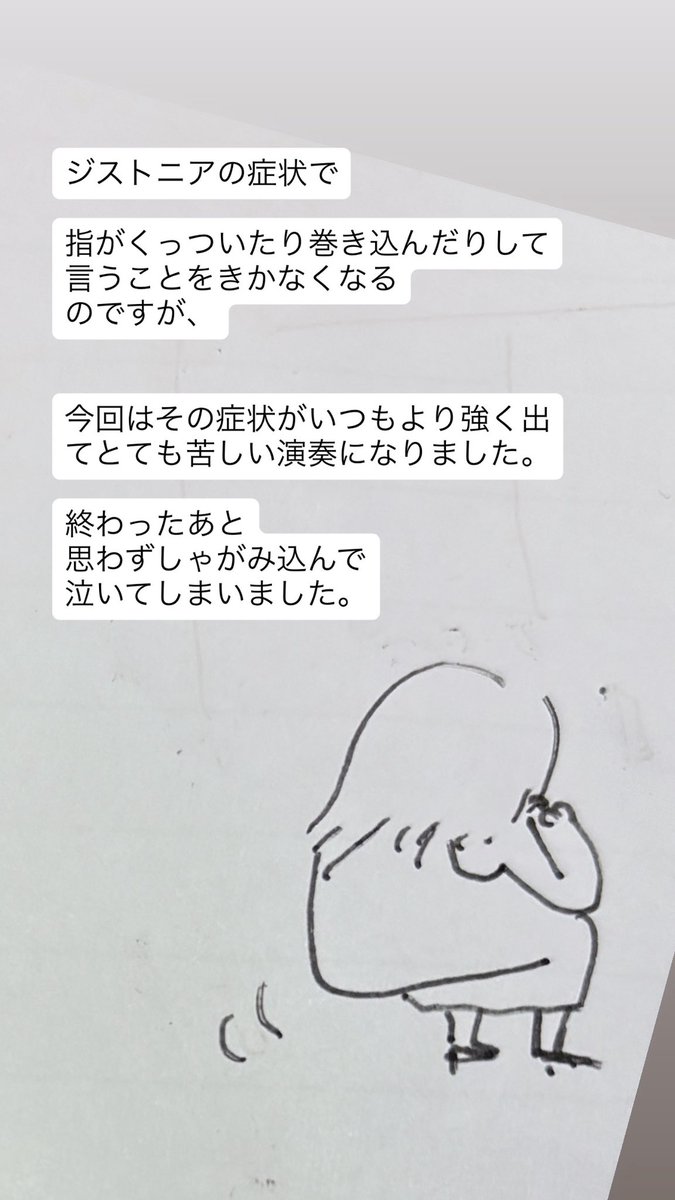 ジストニアの症状で
指がくっついたり巻き込んだりして
言うことをきかなくなる
のですが、
今回はその症状がいつもより強く出
てとても苦しい演奏になりました。
終わったあと
思わずしゃがみ込んで
泣いてしまいました。